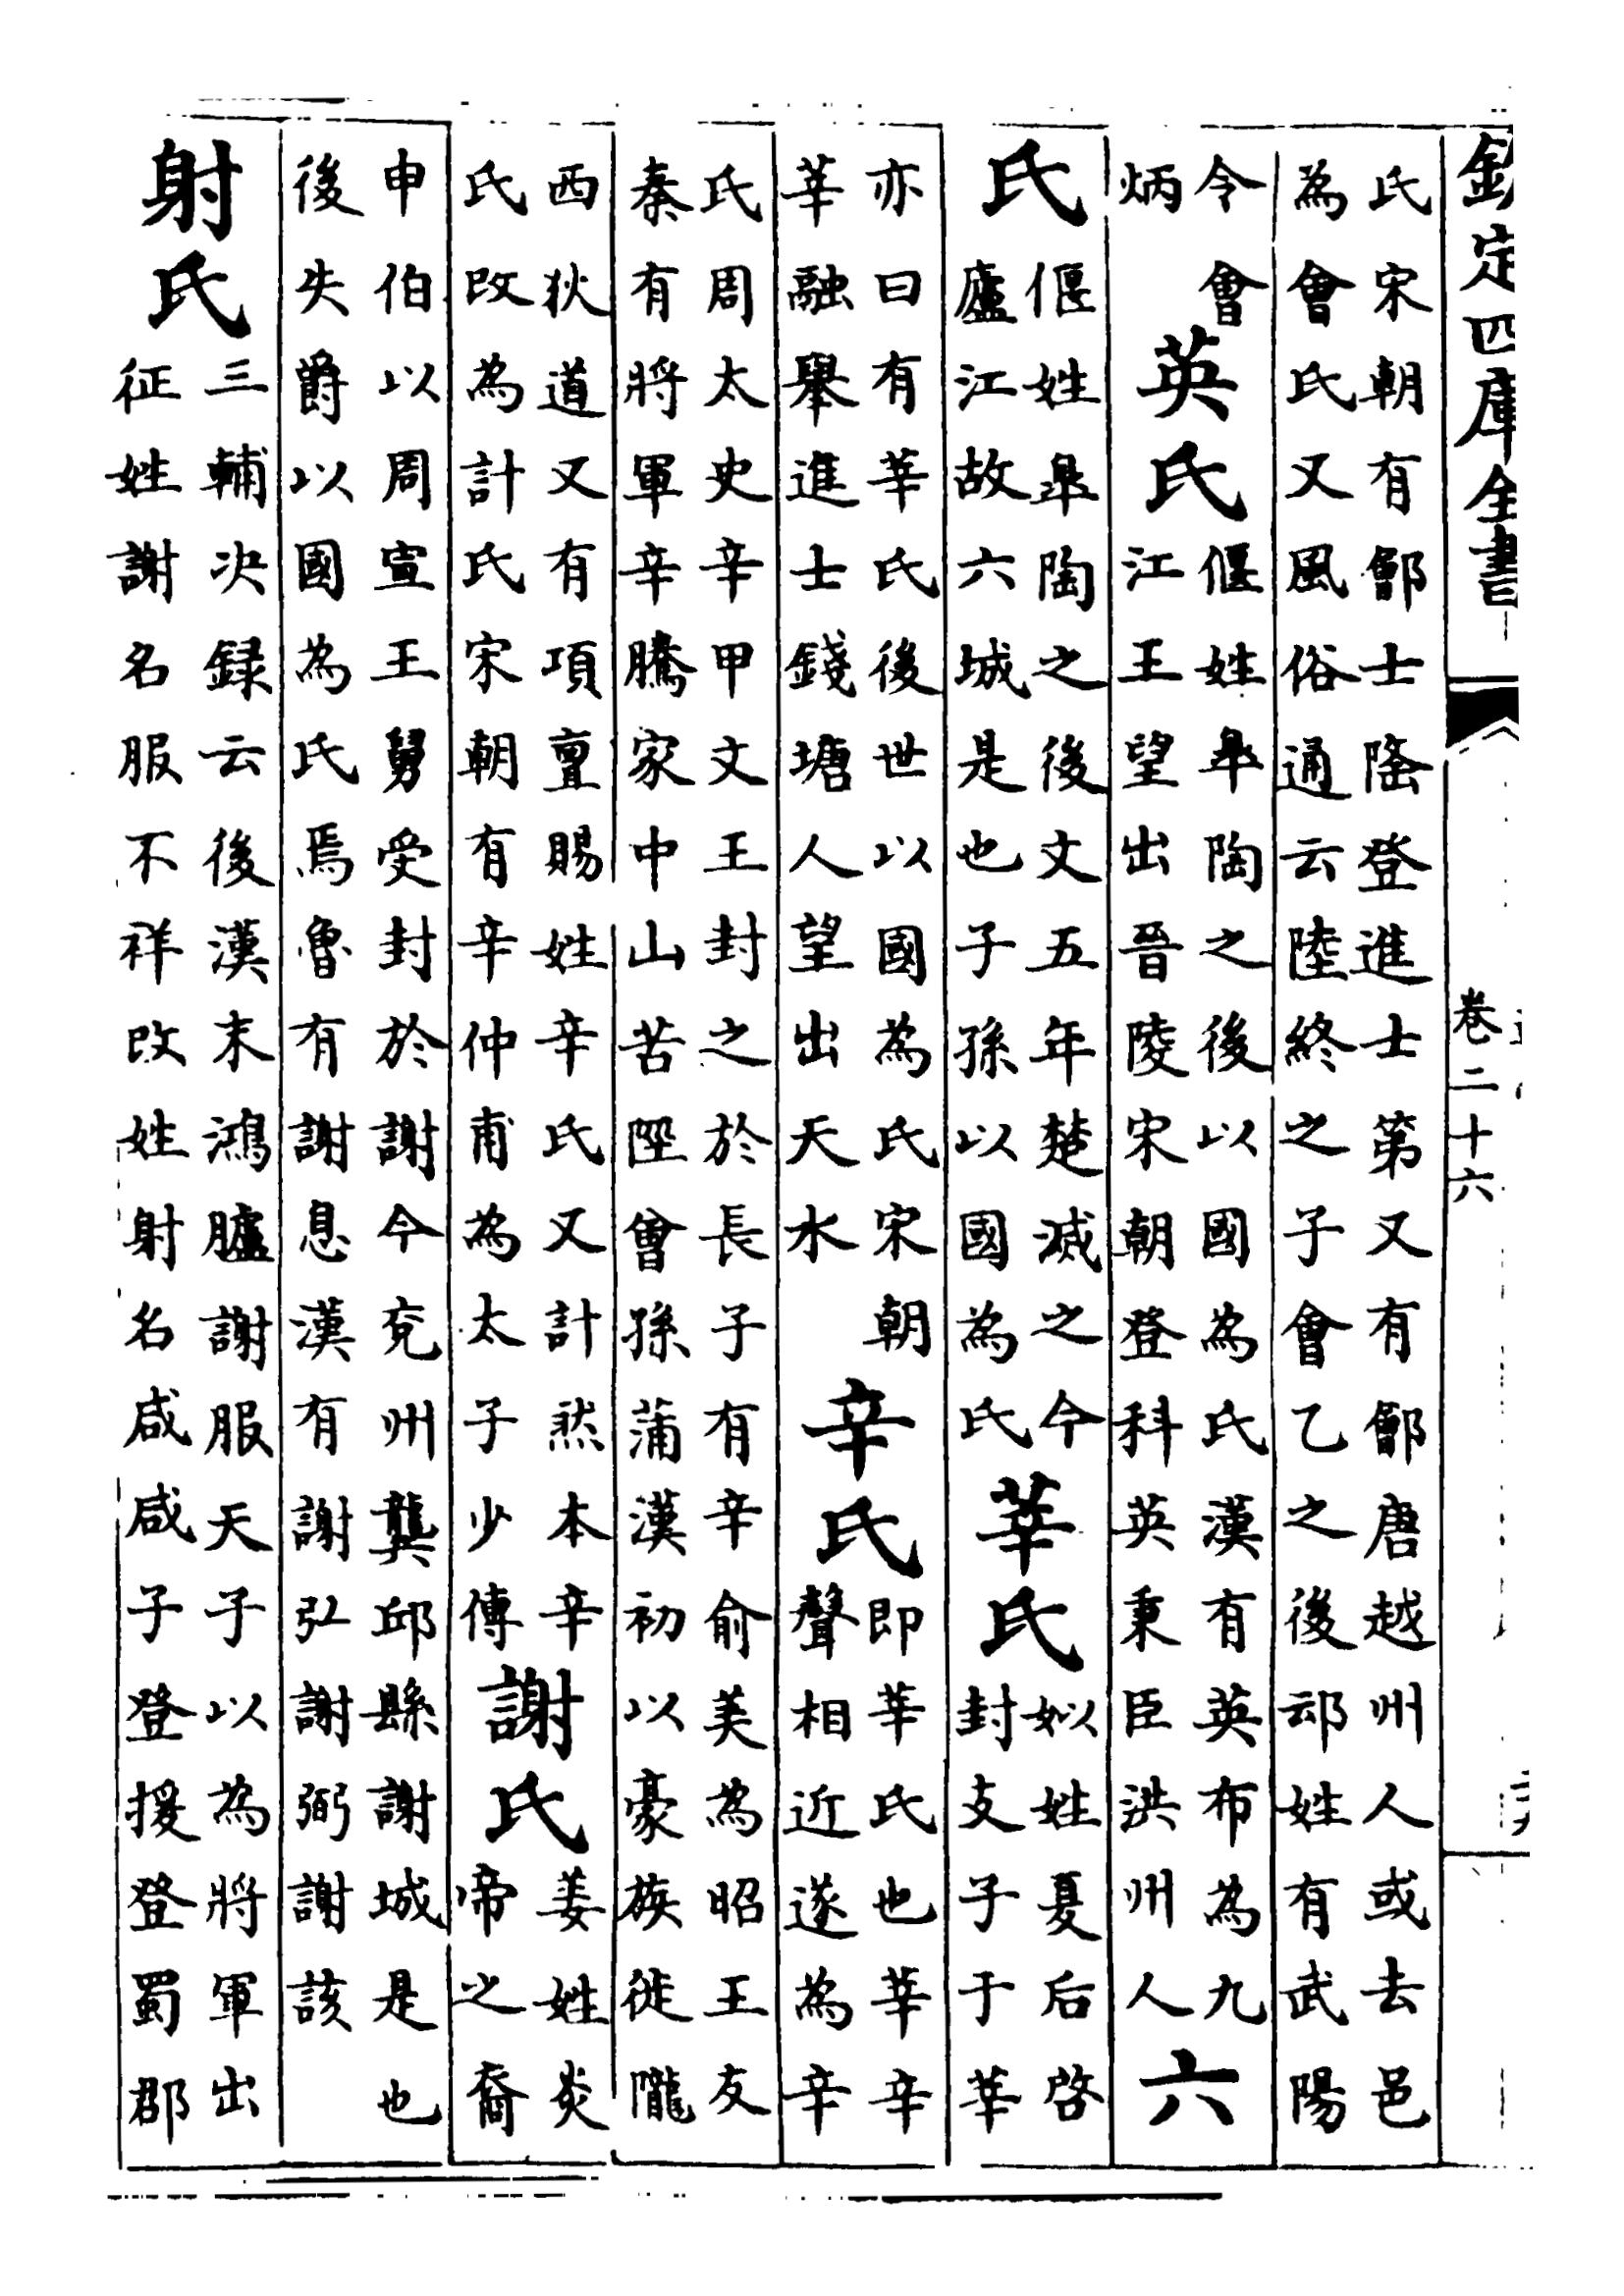 欽定四庫全書
卷二十六
氏宋朝有鄫士隆登進士第又有鄫唐越州人或去邑
為會氏又風俗通云陸終之子會乙之後䢵姓有武陽
令會
炳
英氏
偃姓臯陶之後以國為氏漢有英布為九
江王望出晉陵宋朝登科英秉臣洪州人
六
氏
偃姓臯陶之後文五年楚滅之今
廬江故六城是也子孫以國為氏
莘氏
姒姓夏后啓
封支子于莘
亦曰有莘氏後世以國為氏宋朝
莘融舉進士錢塘人望出天水
辛氏
即莘氏也莘辛
聲相近遂為辛
氏周太史辛甲文王封之於長子有辛俞美為昭王友
秦有將軍辛騰家中山苦陘曾孫蒲漢初以豪族徙隴
西狄道又有項亶賜姓辛氏又計然本辛
氏改為計氏宋朝有辛仲甫為太子少傅
謝氏
姜姓炎
帝之裔
申伯以周宣王舅受封於謝今兖州龔邱縣謝城是也
後失爵以國為氏焉魯有謝息漢有謝弘謝弼謝該
射氏
三輔決録云後漢末鴻臚謝服天子以為將軍出
征姓謝名服不祥改姓射名咸咸子登援登蜀郡